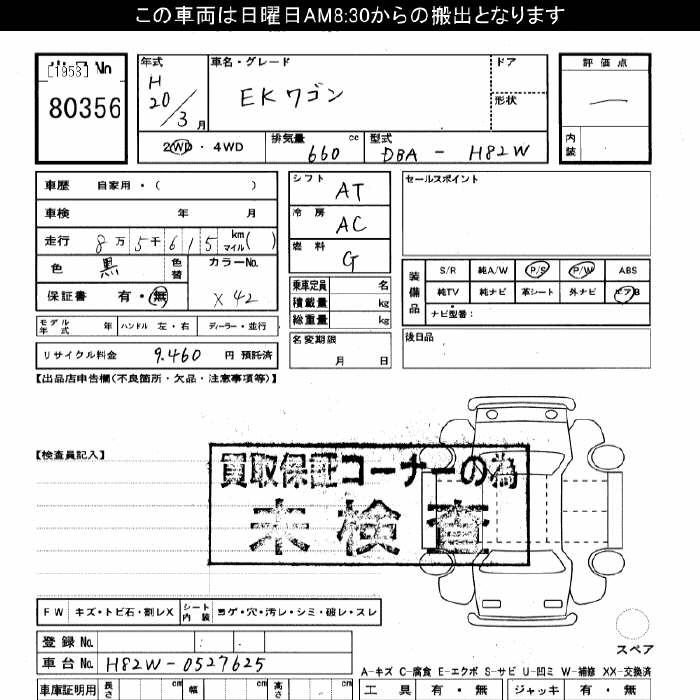 この車両は日曜日AM8:30からの搬出となります
[1953] No
80356
年式 H20/3月
車名・グレード EKワゴン
ドア
形状
評価点 —
内装
2WD・4WD
排気量 660 cc
型式 DBA - H82W
車歴 自家用・( )
車検 年 月
走行 8万5千615 km マイル( )
色 黒 色替 カラーNo. X42
保証書 有・無
モデル年式 年 ハンドル 左・右 ディーラー・並行
リサイクル料金 9.460 円 預託済
シフト AT
冷房 AC
燃料 G
乗車定員 名
積載量 kg
総重量 kg
名変期限 月 日
セールスポイント
装備品
S/R 純A/W P/S P/W ABS
純TV 純ナビ 革シート 外ナビ エアB
ナビ型番:
後日品
【出品店申告欄(不良箇所・欠品・注意事項等)】
【検査員記入】
買取保証コーナーの為
未検査
FW キズ・トビ石・割レX シート内装 コゲ・穴・汚レ・シミ・破レ・スレ
登録No.
車台No. H82W-0527625
スペア
A-キズ C-腐食 E-エクボ S-サビ U-凹ミ W-補修 XX-交換済
車庫証明用 長さ cm 幅 cm 高さ cm
工具 有・無 ジャッキ 有・無